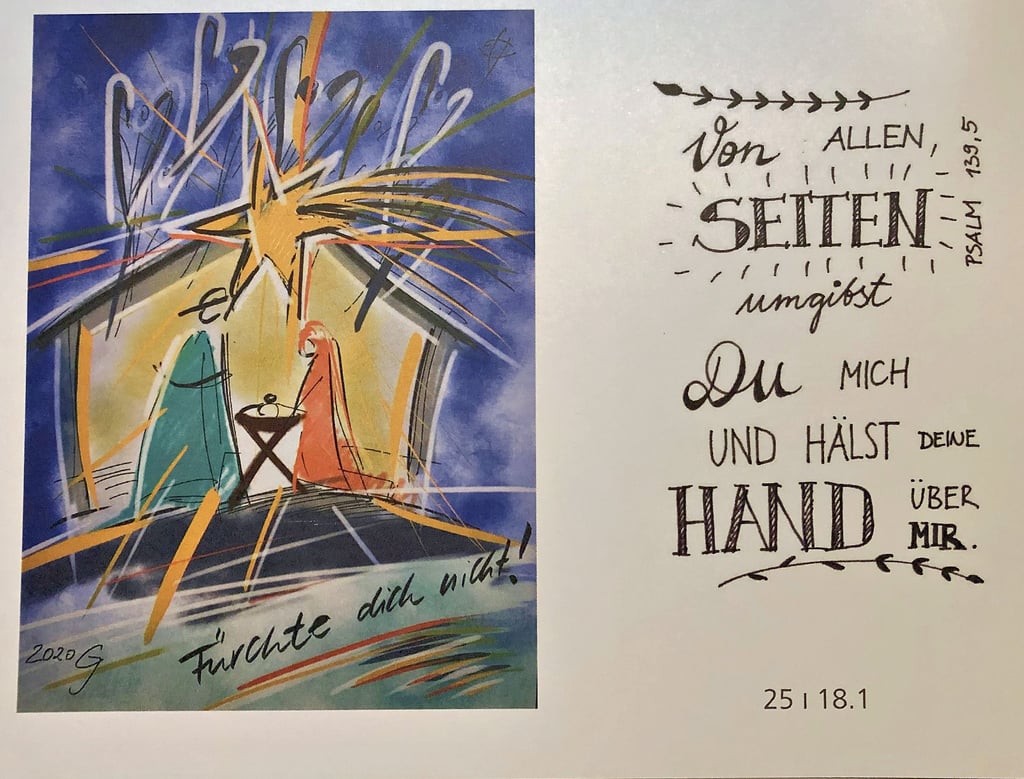 Fürchte dich nicht!
2020 G
Von ALLEN,
SEITEN
umgibst
Du MICH
UND HÄLST DEINE
HAND ÜBER
MIR.
PSALM 139,5
25 | 18.1